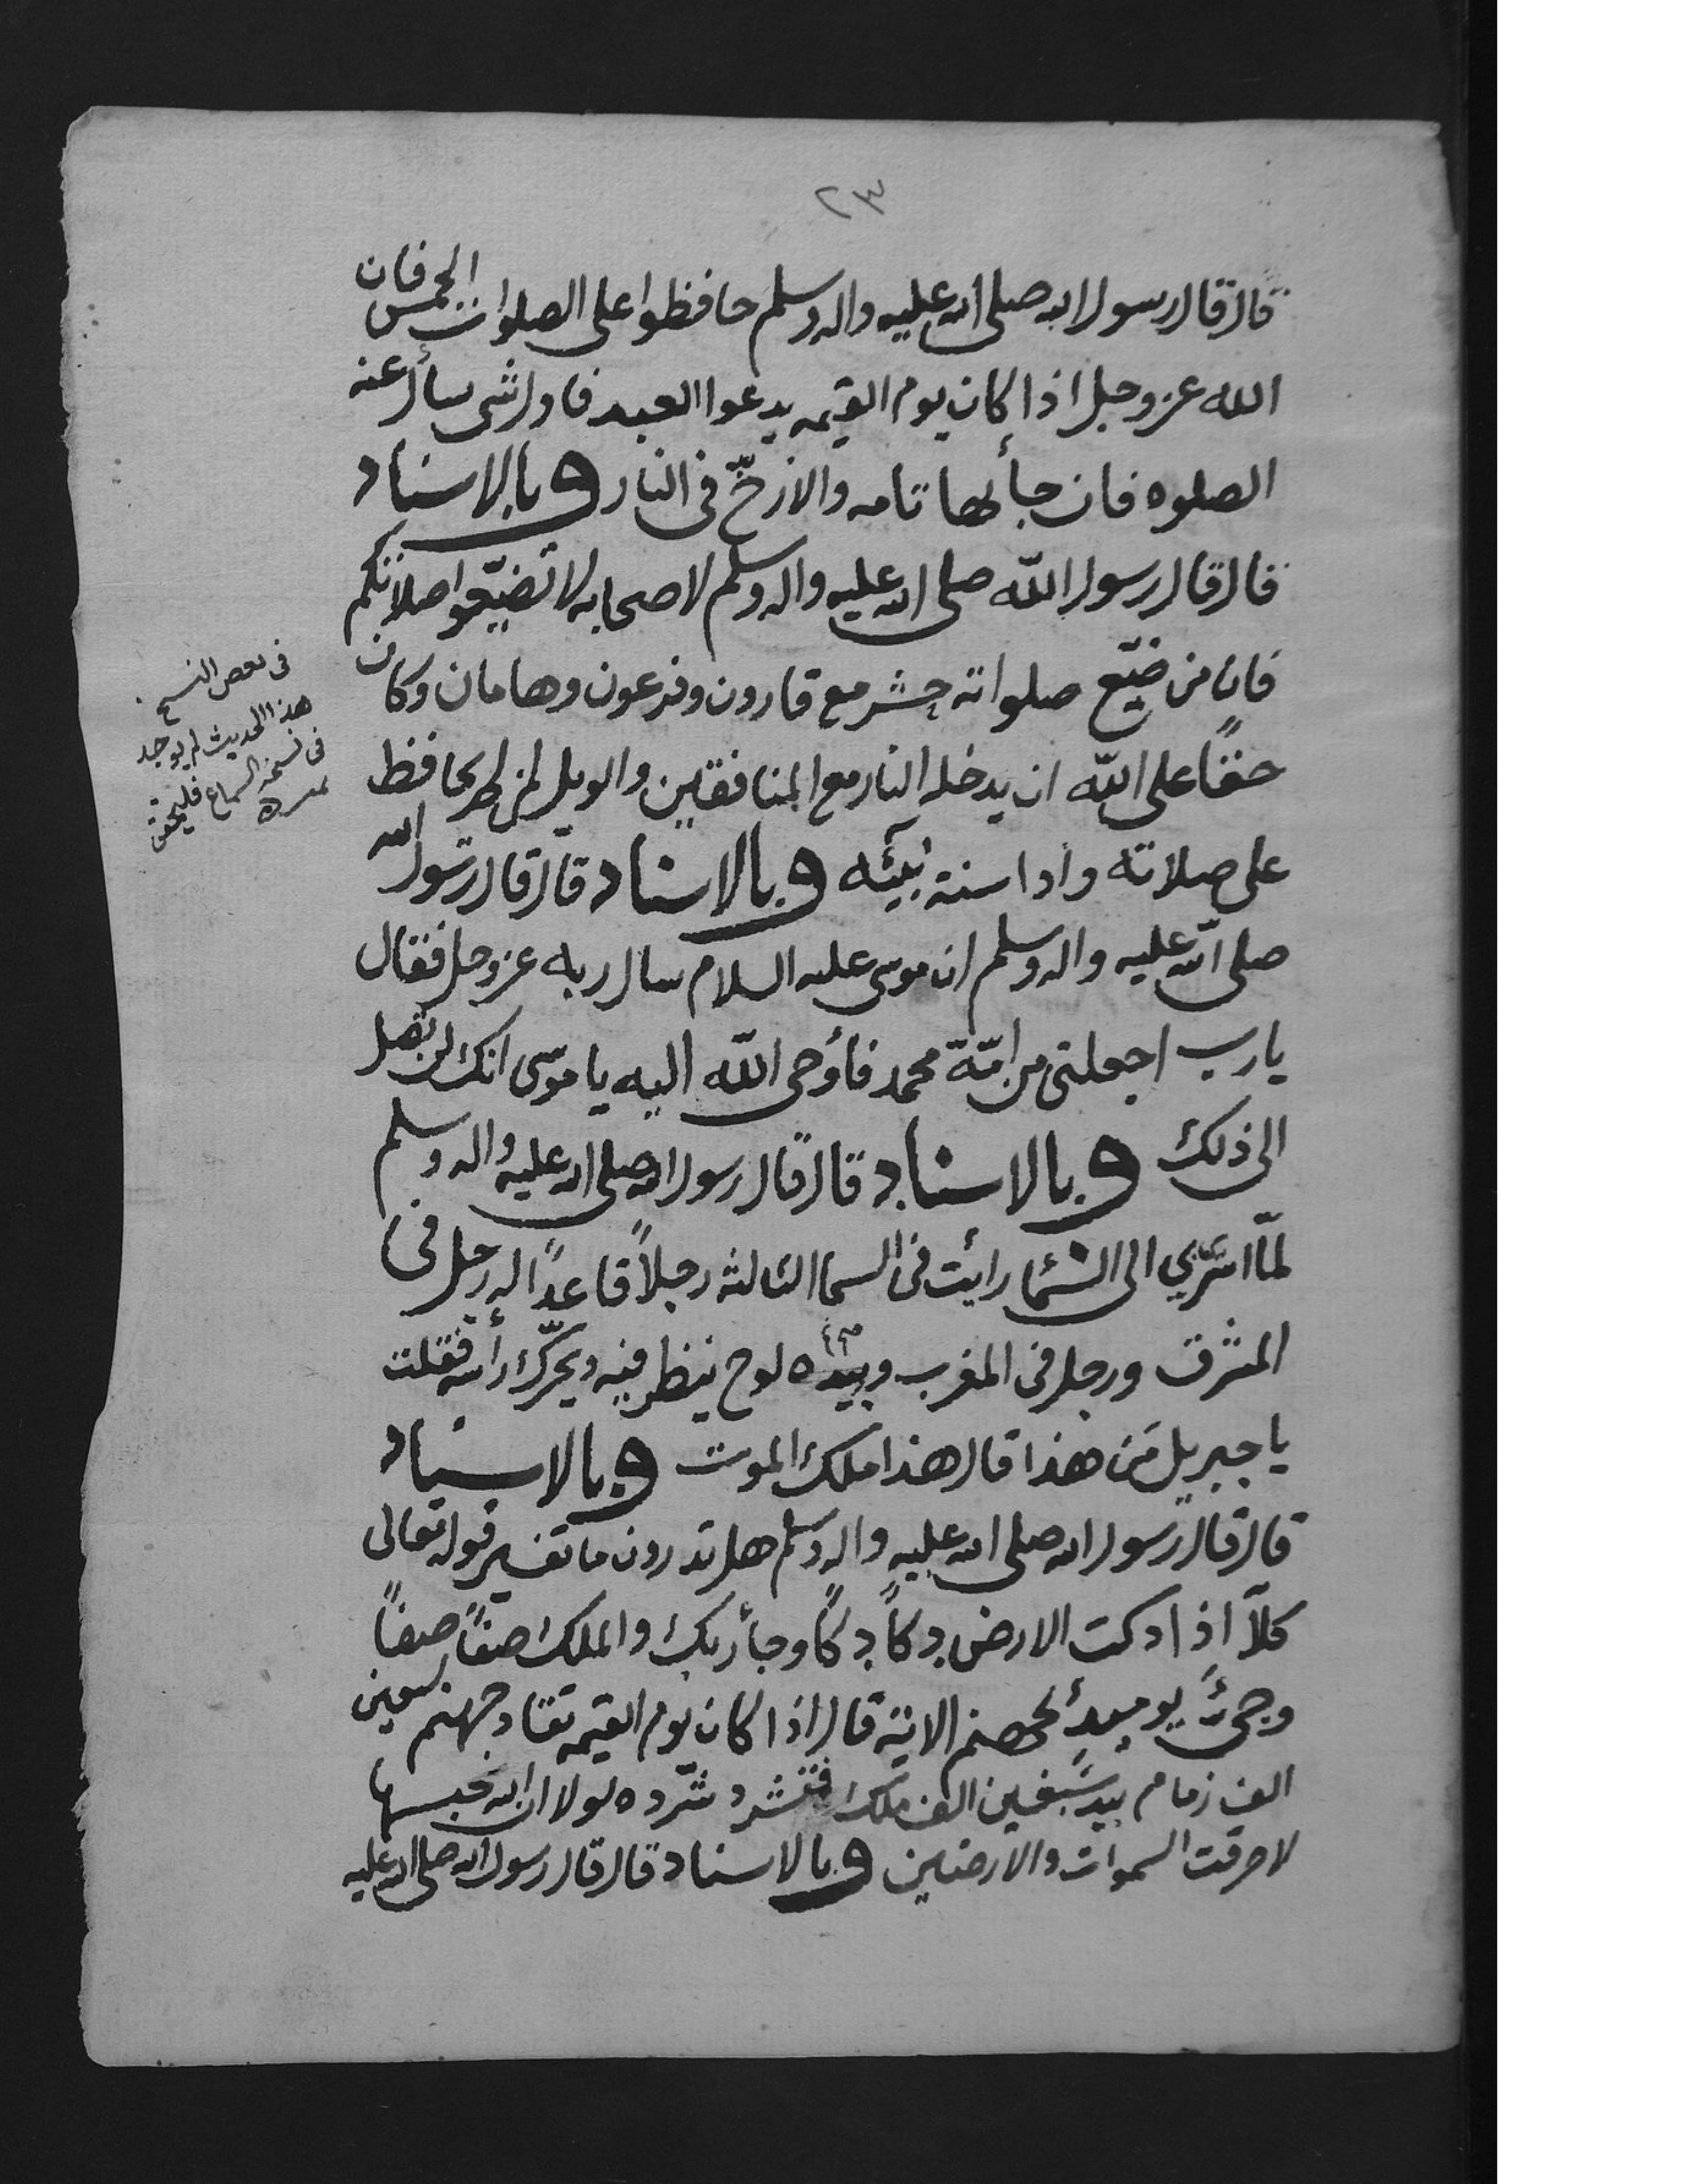 ٢٣
قال قال رسول الله صلى الله عليه واله وسلم حافظوا على الصلوات الخمس فان
الله عز وجل اذا كان يوم القيمه يدعوا العبد فاول شى سأل عنه
الصلوه فان جأ بها تامه والا زخّ فى النار وبالاسناد
قال قال رسول اللّه صلى الله عليه واله وسلم لاصحابه لا تضيّعوا صلاتكم
فان من ضيّع صلواته حشر مع قارون وفرعون وهامان وكان
حقًا على اللّه ان يدخله النار مع المنافقين والويل لمن لم يحافظ
على صلاته وادا سنة نبيّه وبالاسناد قال قال رسول الله
صلى الله عليه واله وسلم ان موسى عليه السلام سال ربه عز وجل فقال
يا رب اجعلنى من امّة محمد فأوحى اللّه اليه يا موسى انك لن تصل
الى ذلك وبالاسناد قال قال رسول الله صلى الله عليه واله وسلم
لمّا اسري بي الى السما رايت فى السما الثالثه رجلاً قاعداً له رجل فى
المشرق ورجل فى المغرب وبيده لوح ينظر فيه ويحرّك رأسه فقلت
يا جبريل من هذا قال هذا ملك الموت وبالاسناد
قال قال رسول الله صلى الله عليه واله وسلم هل تدرون ما تفسير قوله تعالى
كلاّ اذا دكت الارض دكاً دكاً وجأ ربك والملك صفاً صفاً
وجىء يوميذ بجهنم الاية قال اذا كان يوم القيمه تقاد جهنم بسبعين
الف زمام بيد سبعين الف ملك فتشرد شرّده لولا ان الله حبسها
لاحرقت السموات والارضين وبالاسناد قال قال رسول الله صلى الله عليه
فى بعض النسخ
هذا الحديث لم يوجد
فى نسخة السماع فليحقق